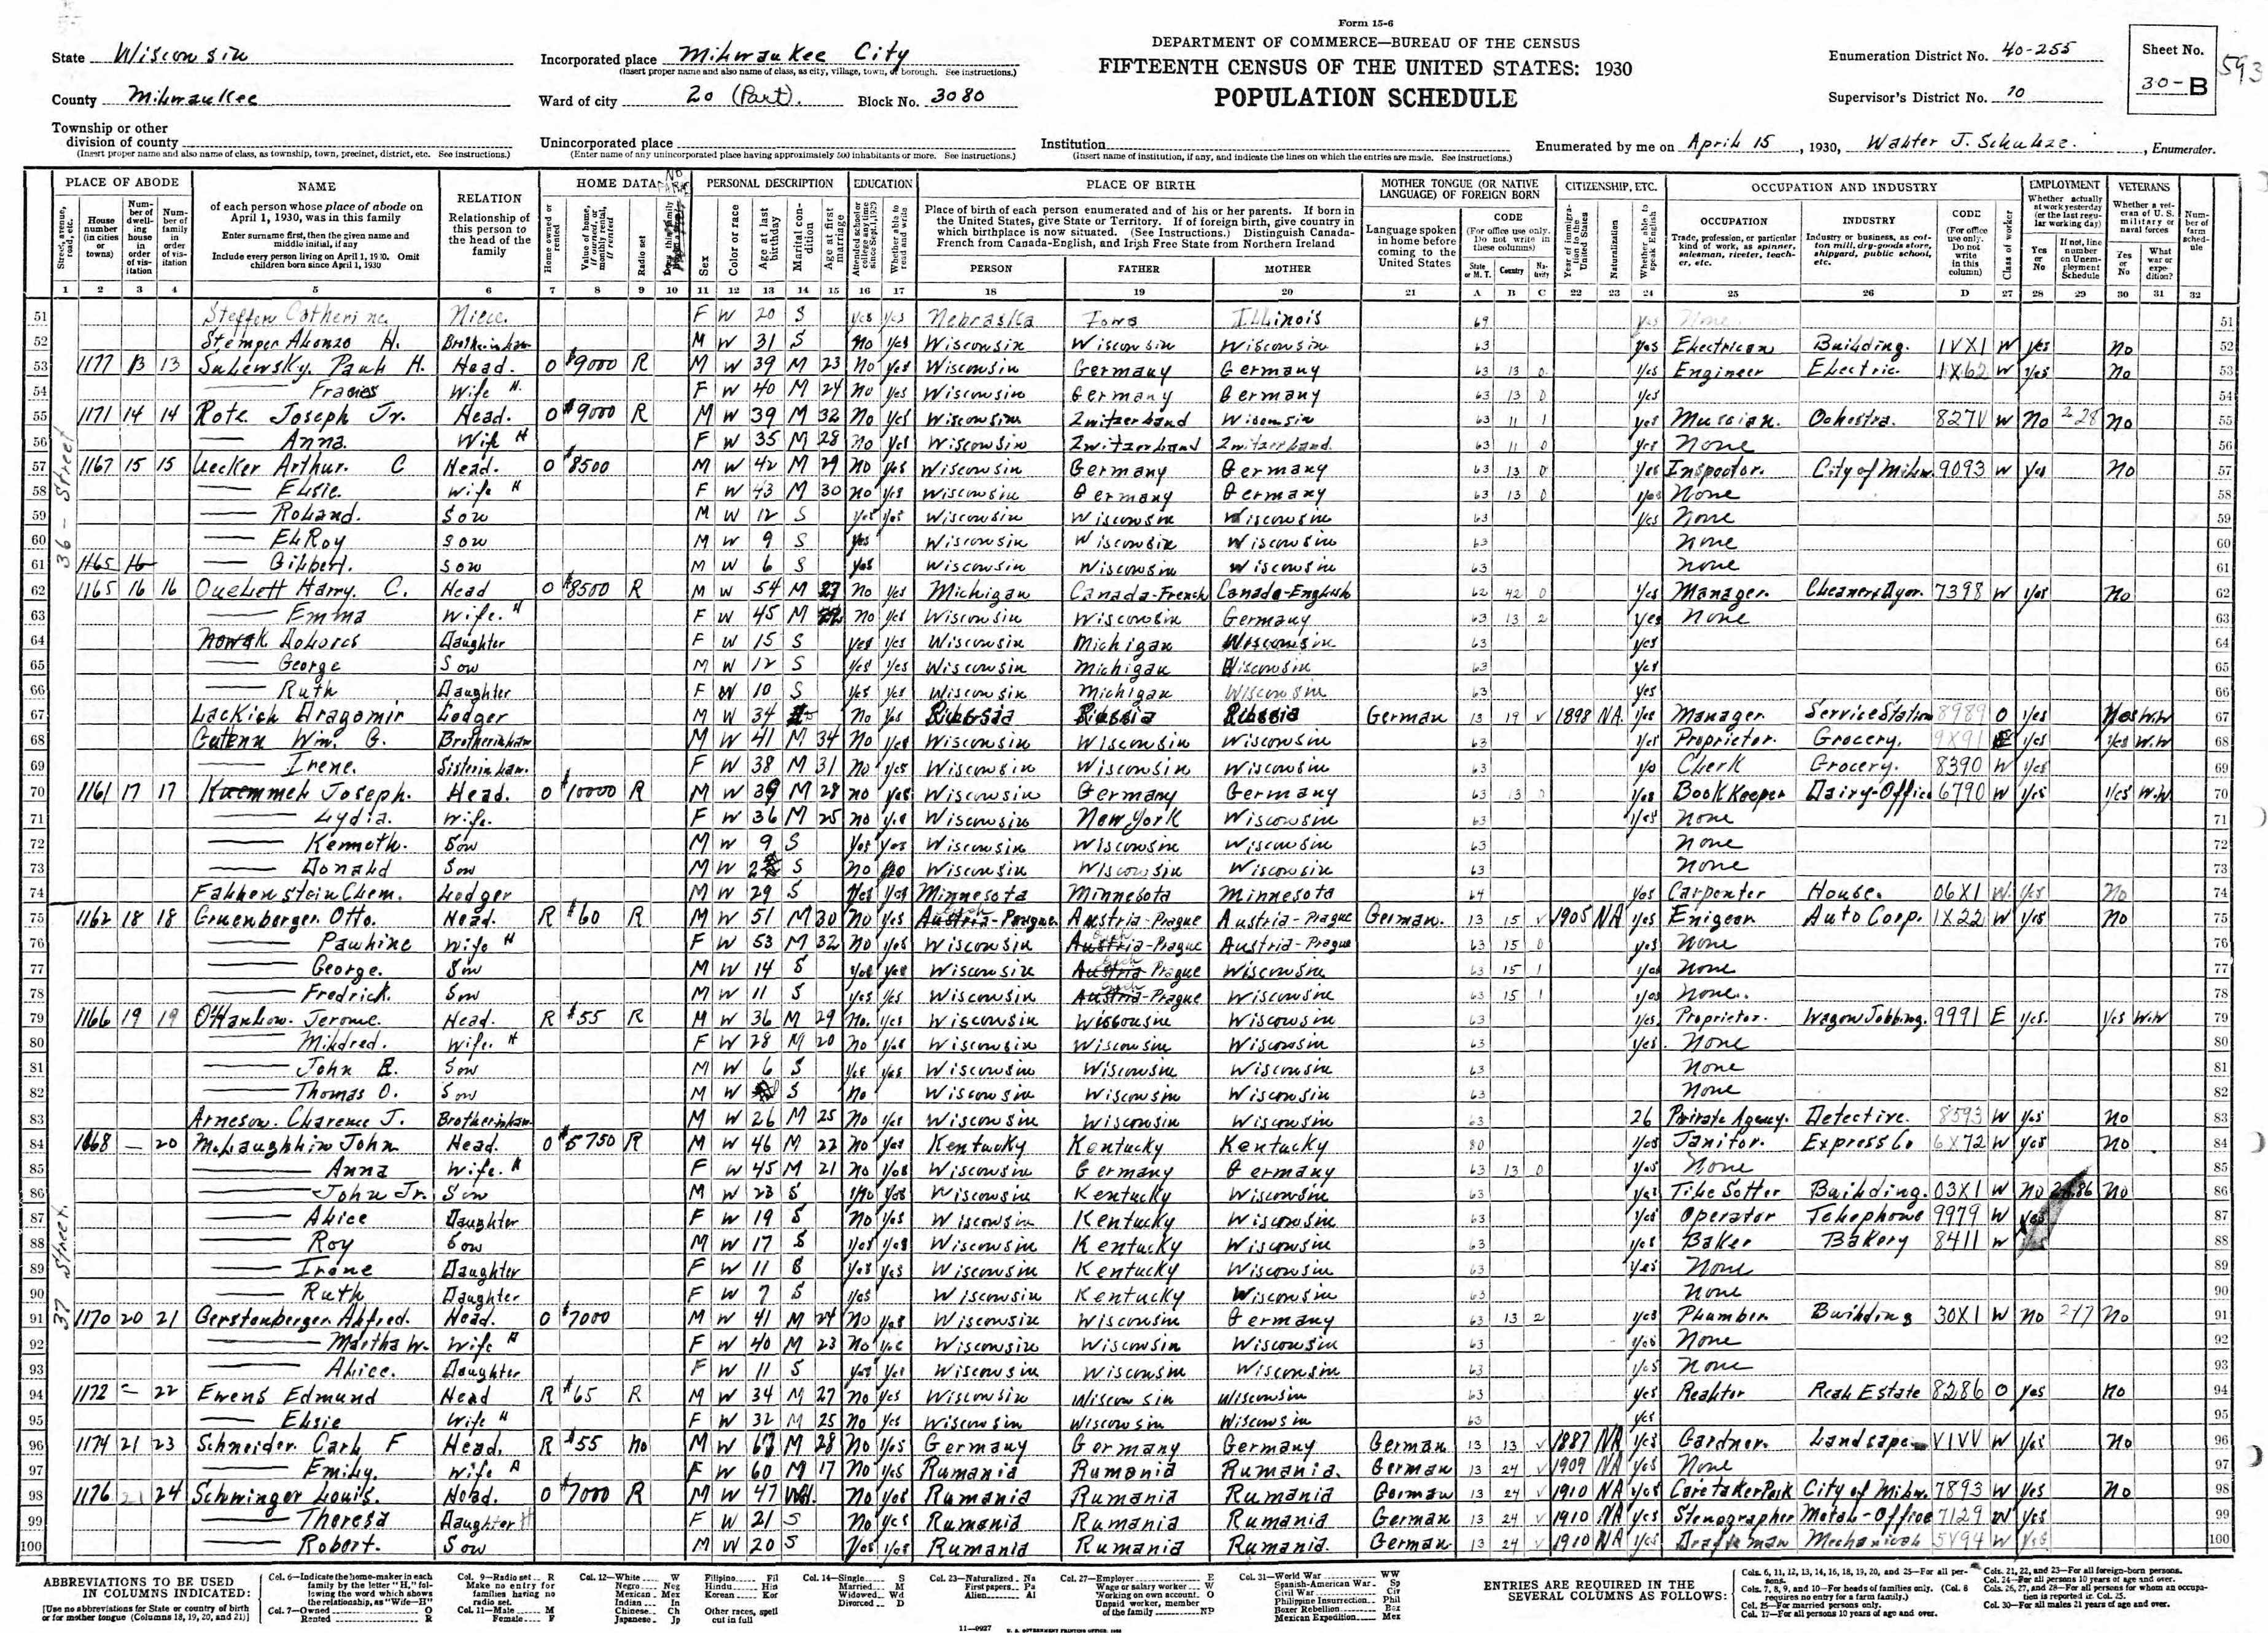 Form 15-6
DEPARTMENT OF COMMERCE—BUREAU OF THE CENSUS
FIFTEENTH CENSUS OF THE UNITED STATES: 1930
POPULATION SCHEDULE
State Wisconsin
County Milwaukee
Township or other division of county
(Insert proper name and also name of class, as township, town, precinct, district, etc. See instructions.)
Incorporated place Milwaukee City
(Insert proper name and also name of class, as city, village, town, or borough. See instructions.)
Ward of city 20 (Part). Block No. 3080
Unincorporated place
(Enter name of any unincorporated place having approximately 500 inhabitants or more. See instructions.)
Institution
(Insert name of institution, if any, and indicate the lines on which the entries are made. See instructions.)
Enumeration District No. 40-255
Supervisor's District No. 10
Sheet No. 30-B
593
Enumerated by me on April 15, 1930, Walter J. Schulze., Enumerator.
PLACE OF ABODE NAME RELATION HOME DATA PERSONAL DESCRIPTION EDUCATION PLACE OF BIRTH MOTHER TONGUE (OR NATIVE LANGUAGE) OF FOREIGN BORN CITIZENSHIP, ETC. OCCUPATION AND INDUSTRY EMPLOYMENT VETERANS
1 2 3 4 5 6 7 8 9 10 11 12 13 14 15 16 17 18 19 20 21 A B C 22 23 24 25 26 D 27 28 29 30 31 32
36 - Street
51 Steffen Catherine Niece. F W 20 S yes yes Nebraska Iowa Illinois 69 yes None 51
52 Stemper Alonzo H. Brotherinlaw M W 31 S No yes Wisconsin Wisconsin Wisconsin 63 yes Electrican Building. 1VX1 W yes No 52
53 1177 13 13 Sulewsky. Paul H. Head. O $9000 R M W 39 M 23 No yes Wisconsin Germany Germany 63 13 0 yes Engineer Electric. 1X62 W yes No 53
54 Frances Wife H. F W 40 M 24 No yes Wisconsin Germany Germany 63 13 0 yes 54
55 1171 14 14 Rote Joseph Jr. Head. O $9000 R M W 39 M 32 No yes Wisconsin Zwitzerland Wisconsin 63 11 1 yes Mussian. Ochestra. 827V W No 228 No 55
56 Anna. Wife H F W 35 M 28 No yes Wisconsin Zwitzerland Zwitzerland. 63 11 0 yes None 56
57 1167 15 15 Uecker Arthur. C Head. O $8500 M W 42 M 29 No yes Wisconsin Germany Germany 63 13 0 yes Inspector. City of Milw. 9093 W yes No 57
58 Elsie. Wife H F W 43 M 30 No yes Wisconsin Germany Germany 63 13 0 yes None 58
59 Roland. Son M W 12 S yes yes Wisconsin Wisconsin Wisconsin 63 yes None 59
60 ElRoy Son M W 9 S yes Wisconsin Wisconsin Wisconsin 63 None 60
61 1165 16 Gilbert. Son M W 6 S yes Wisconsin Wisconsin Wisconsin 63 None 61
62 1165 16 16 Ouelett Harry. C. Head O $8500 R M W 54 M 27 No yes Michigan Canada-French Canada-English 62 42 0 yes Manager. Cleaner & Dyer. 7398 W yes No 62
63 Emma Wife. H F W 45 M No yes Wisconsin Wisconsin Germany 63 13 2 yes None 63
64 Nowak Dolores Daughter F W 15 S yes yes Wisconsin Michigan Wisconsin 63 yes 64
65 George Son M W 12 S yes yes Wisconsin Michigan Wisconsin 63 yes 65
66 Ruth Daughter F W 10 S yes yes Wisconsin Michigan Wisconsin 63 yes 66
67 Lackich Dragomir Lodger M W 34 No yes Russia Russia Russia German 13 19 V 1898 NA yes Manager. Service Station 8989 O yes Yes W.W 67
68 Gutenn Wm. G. Brotherinlaw M W 41 M 34 No yes Wisconsin Wisconsin Wisconsin 63 yes Proprietor. Grocery. 9X91 E yes yes W.W 68
69 Irene. Sister in law. F W 38 M 31 No yes Wisconsin Wisconsin Wisconsin 63 yes Clerk Grocery. 8390 W yes 69
70 1161 17 17 Kuemmel Joseph. Head. O $10000 R M W 39 M 28 No yes Wisconsin Germany Germany 63 13 0 yes BookKeeper Dairy-Office 6790 W yes yes W.W 70
71 Lydia. Wife. F W 36 M 25 No yes Wisconsin New York Wisconsin 63 yes None 71
72 Kenneth. Son M W 9 S yes yes Wisconsin Wisconsin Wisconsin 63 None 72
73 Donald Son M W 2 S No No Wisconsin Wisconsin Wisconsin 63 None 73
74 Falkenstein Clem. Lodger M W 29 S yes yes Minnesota Minnesota Minnesota 64 yes Carpenter House. 06X1 W. yes No 74
75 1162 18 18 Gruenberger. Otto. Head. R $60 R M W 51 M 30 No yes Austria-Prague Austria-Prague Austria-Prague German. 13 15 V 1905 NA yes Enigeer Auto Corp. 1X22 W yes No 75
76 Pauline Wife H F W 53 M 32 No yes Wisconsin Austria-Prague Austria-Prague 63 15 0 yes None 76
77 George. Son M W 14 S yes yes Wisconsin Austria Prague Wisconsin 63 15 1 yes None 77
78 Fredrick. Son M W 11 S yes yes Wisconsin Austria-Prague Wisconsin 63 15 1 yes None. 78
79 1166 19 19 O'Hanlow. Jerome. Head. R $55 R M W 36 M 29 No. yes Wisconsin Wisconsin Wisconsin 63 yes. Proprietor. Wagon Jobbing. 9991 E yes. yes W.W 79
80 Mildred. Wife. H F W 28 M 20 No yes Wisconsin Wisconsin Wisconsin 63 yes. None 80
81 John R. Son M W 6 S yes yes Wisconsin Wisconsin Wisconsin 63 None 81
82 Thomas O. Son M W S No Wisconsin Wisconsin Wisconsin 63 None 82
83 Arneson. Clarence J. Brotherinlaw M W 26 M 25 No yes Wisconsin Wisconsin Wisconsin 63 26 Private Agency. Detective. 8593 W yes No 83
37 Street.
84 1168 — 20 McLaughlin John Head. O $5750 R M W 46 M 22 No yes Kentucky Kentucky Kentucky 80 yes Janitor. Express Co 6X72 W yes No 84
85 Anna Wife. H F W 45 M 21 No yes Wisconsin Germany Germany 63 13 0 yes None 85
86 John Jr. Son M W 23 S No yes Wisconsin Kentucky Wisconsin 63 yes Tile Setter Building. 03X1 W No No 86
87 Alice Daughter F W 19 S No yes Wisconsin Kentucky Wisconsin 63 yes Operator Telephone 9979 W yes 87
88 Roy Son M W 17 S yes yes Wisconsin Kentucky Wisconsin 63 yes Baker Bakery 8411 W 88
89 Irene Daughter F W 11 S yes yes Wisconsin Kentucky Wisconsin 63 yes None 89
90 Ruth Daughter F W 7 S yes Wisconsin Kentucky Wisconsin 63 None 90
91 1170 20 21 Gerstenberger Alfred. Head. O $7000 M W 41 M 24 No yes Wisconsin Wisconsin Germany 63 13 2 yes Plumber Building 30X1 W No 217 No 91
92 Martha W. Wife H F W 40 M 23 No yes Wisconsin Wisconsin Wisconsin 63 yes None 92
93 Alice. Daughter F W 11 S yes yes Wisconsin Wisconsin Wisconsin 63 yes None 93
94 1172 = 22 Ewens Edmund Head R $65 R M W 34 M 27 No yes Wisconsin Wisconsin Wisconsin 63 yes Realtor Real Estate 8286 O yes No 94
95 Elsie Wife H F W 32 M 25 No yes Wisconsin Wisconsin Wisconsin 63 yes 95
96 1174 21 23 Schneider. Carl F Head. R $55 No M W 67 M 28 No yes Germany Germany Germany German 13 13 V 1887 NA yes Gardner. Landscape V1VV W yes No 96
97 Emily. Wife H F W 60 M 17 No yes Rumania Rumania Rumania. German 13 24 V 1909 NA yes None 97
98 1176 21 24 Schwinger Louis. Head. O $7000 R M W 47 Wd. No yes Rumania Rumania Rumania German 13 24 V 1910 NA yes Caretaker Park City of Milw. 7893 W yes No 98
99 Theresa Daughter H F W 21 S No yes Rumania Rumania Rumania German 13 24 V 1910 NA yes Stenographer Metal-Office 7129 W yes 99
100 Robert. Son M W 20 S yes yes Rumania Rumania Rumania. German 13 24 V 1910 NA yes Draftsman Mechanical 5V94 W yes 100
ABBREVIATIONS TO BE USED IN COLUMNS INDICATED:
[Use no abbreviations for State or country of birth or for mother tongue (Columns 18, 19, 20, and 21)]
Col. 6—Indicate the home-maker in each family by the letter "H," following the word which shows the relationship, as "Wife—H"
Col. 7—Owned O Rented R
Col. 9—Radio set R Make no entry for families having no radio set.
Col. 11—Male M Female F
Col. 12—White W Negro Neg Mexican Mex Indian In Chinese Ch Japanese Jp Filipino Fil Hindu Hin Korean Kor Other races, spell out in full
Col. 14—Single S Married M Widowed Wd Divorced D
Col. 23—Naturalized Na First papers Pa Alien Al
Col. 27—Employer E Wage or salary worker W Working on own account O Unpaid worker, member of the family NP
Col. 31—World War WW Spanish-American War Sp Civil War Civ Philippine Insurrection Phil Boxer Rebellion Box Mexican Expedition Mex
ENTRIES ARE REQUIRED IN THE SEVERAL COLUMNS AS FOLLOWS:
Cols. 6, 11, 12, 13, 14, 16, 18, 19, 20, and 25—For all persons.
Cols. 7, 8, 9, and 10—For heads of families only. (Col. 8 requires no entry for a farm family.)
Col. 15—For married persons only.
Col. 17—For all persons 10 years of age and over.
Cols. 21, 22, and 23—For all foreign-born persons.
Col. 24—For all persons 10 years of age and over.
Cols. 26, 27, and 28—For all persons for whom an occupation is reported in Col. 25.
Col. 30—For all males 21 years of age and over.
11—9927 U. S. GOVERNMENT PRINTING OFFICE